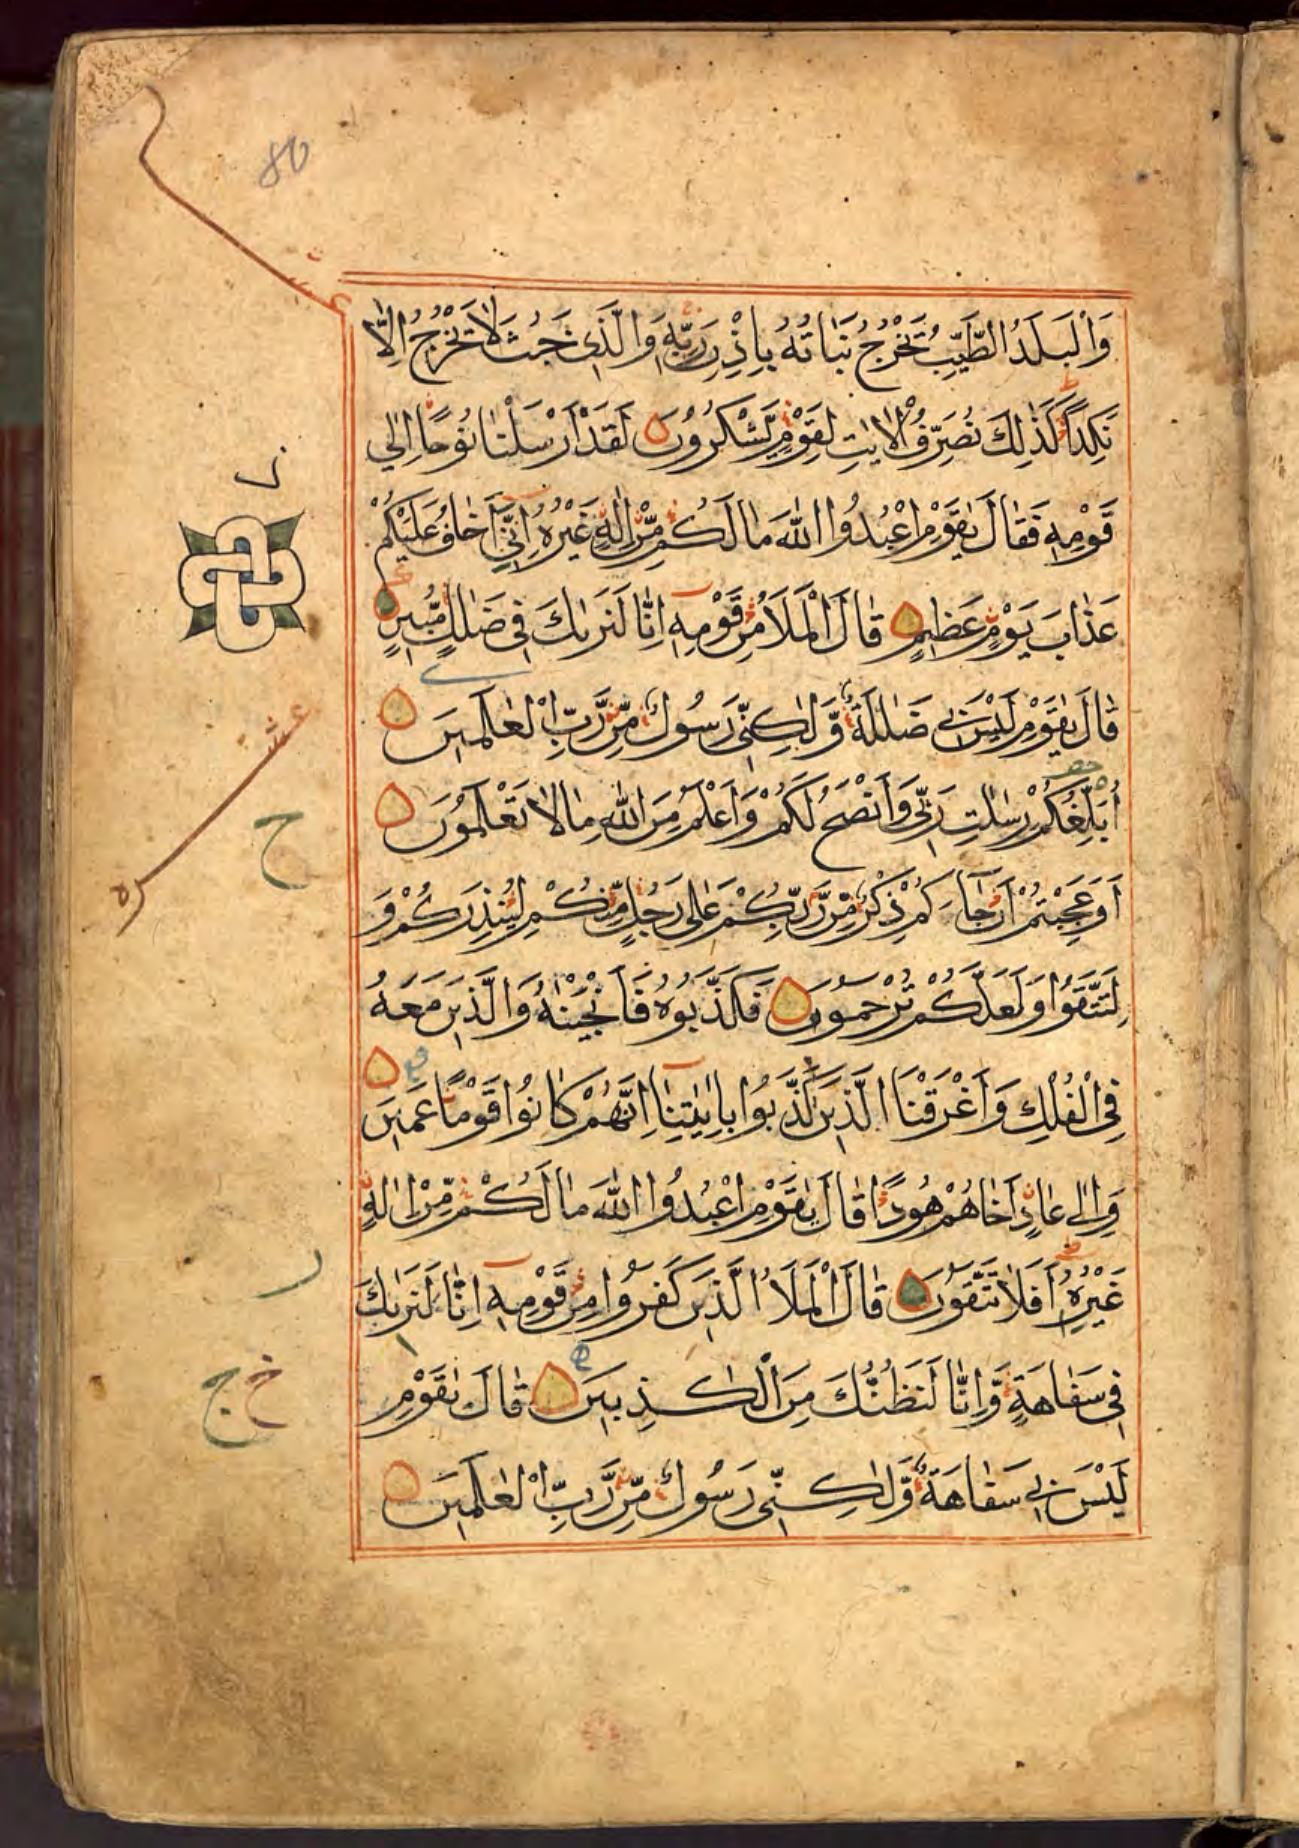 80
عشر
وَالْبَلَدُ الطَّيِّبُ يَخْرُجُ نَبَاتُهُ بِاِذْنِ رَبِّهٖ وَالَّذِى خَبُثَ لَا يَخْرُجُ اِلَّا
نَكِدًا كَذٰلِكَ نُصَرِّفُ الْاٰيٰتِ لِقَوْمٍ يَّشْكُرُوْنَ لَقَدْ اَرْسَلْنَا نُوْحًا اِلٰى
قَوْمِهٖ فَقَالَ يٰقَوْمِ اعْبُدُوا اللّٰهَ مَا لَكُمْ مِّنْ اِلٰهٍ غَيْرُهٗ اِنِّىْ اَخَافُ عَلَيْكُمْ
عَذَابَ يَوْمٍ عَظِيْمٍ قَالَ الْمَلَاُ مِنْ قَوْمِهٖ اِنَّا لَنَرٰىكَ فِى ضَلٰلٍ مُّبِيْنٍ
قَالَ يٰقَوْمِ لَيْسَ بِى ضَلٰلَةٌ وَّلٰكِنِّى رَسُوْلٌ مِّنْ رَّبِّ الْعٰلَمِيْنَ
اُبَلِّغُكُمْ رِسٰلٰتِ رَبِّى وَاَنْصَحُ لَكُمْ وَاَعْلَمُ مِنَ اللّٰهِ مَا لَا تَعْلَمُوْنَ
اَوَعَجِبْتُمْ اَنْ جَآءَكُمْ ذِكْرٌ مِّنْ رَّبِّكُمْ عَلٰى رَجُلٍ مِّنْكُمْ لِيُنْذِرَكُمْ وَ
لِتَتَّقُوْا وَلَعَلَّكُمْ تُرْحَمُوْنَ فَكَذَّبُوْهُ فَاَنْجَيْنٰهُ وَالَّذِيْنَ مَعَهٗ
فِى الْفُلْكِ وَاَغْرَقْنَا الَّذِيْنَ كَذَّبُوْا بِاٰيٰتِنَا اِنَّهُمْ كَانُوْا قَوْمًا عَمِيْنَ
وَاِلٰى عَادٍ اَخَاهُمْ هُوْدًا قَالَ يٰقَوْمِ اعْبُدُوا اللّٰهَ مَا لَكُمْ مِّنْ اِلٰهٍ
غَيْرُهٗ اَفَلَا تَتَّقُوْنَ قَالَ الْمَلَاُ الَّذِيْنَ كَفَرُوْا مِنْ قَوْمِهٖ اِنَّا لَنَرٰىكَ
فِى سَفَاهَةٍ وَّاِنَّا لَنَظُنُّكَ مِنَ الْكٰذِبِيْنَ قَالَ يٰقَوْمِ
لَيْسَ بِى سَفَاهَةٌ وَّلٰكِنِّى رَسُوْلٌ مِّنْ رَّبِّ الْعٰلَمِيْنَ
عشره
ح
ر
ج خ